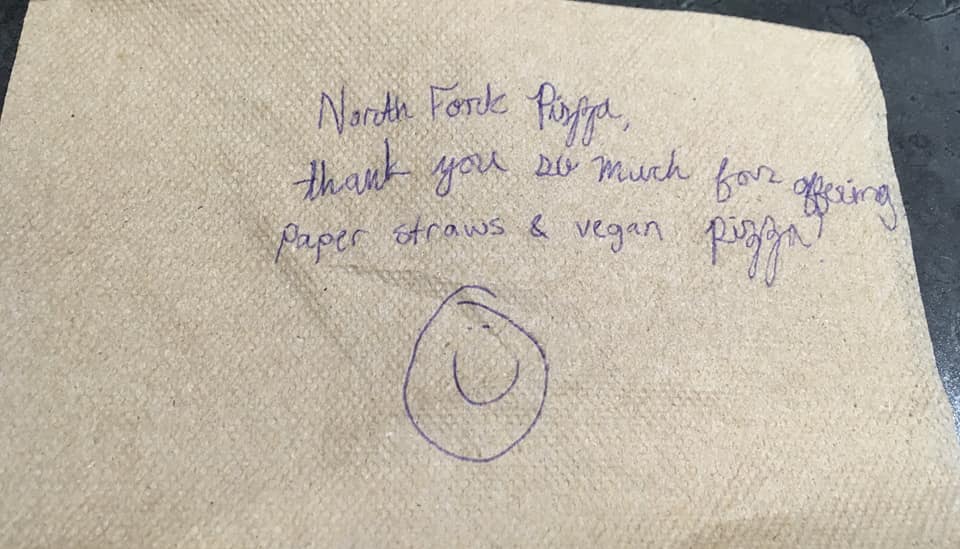 North Fork Pizza,
thank you so much for offering
paper straws & vegan pizza!